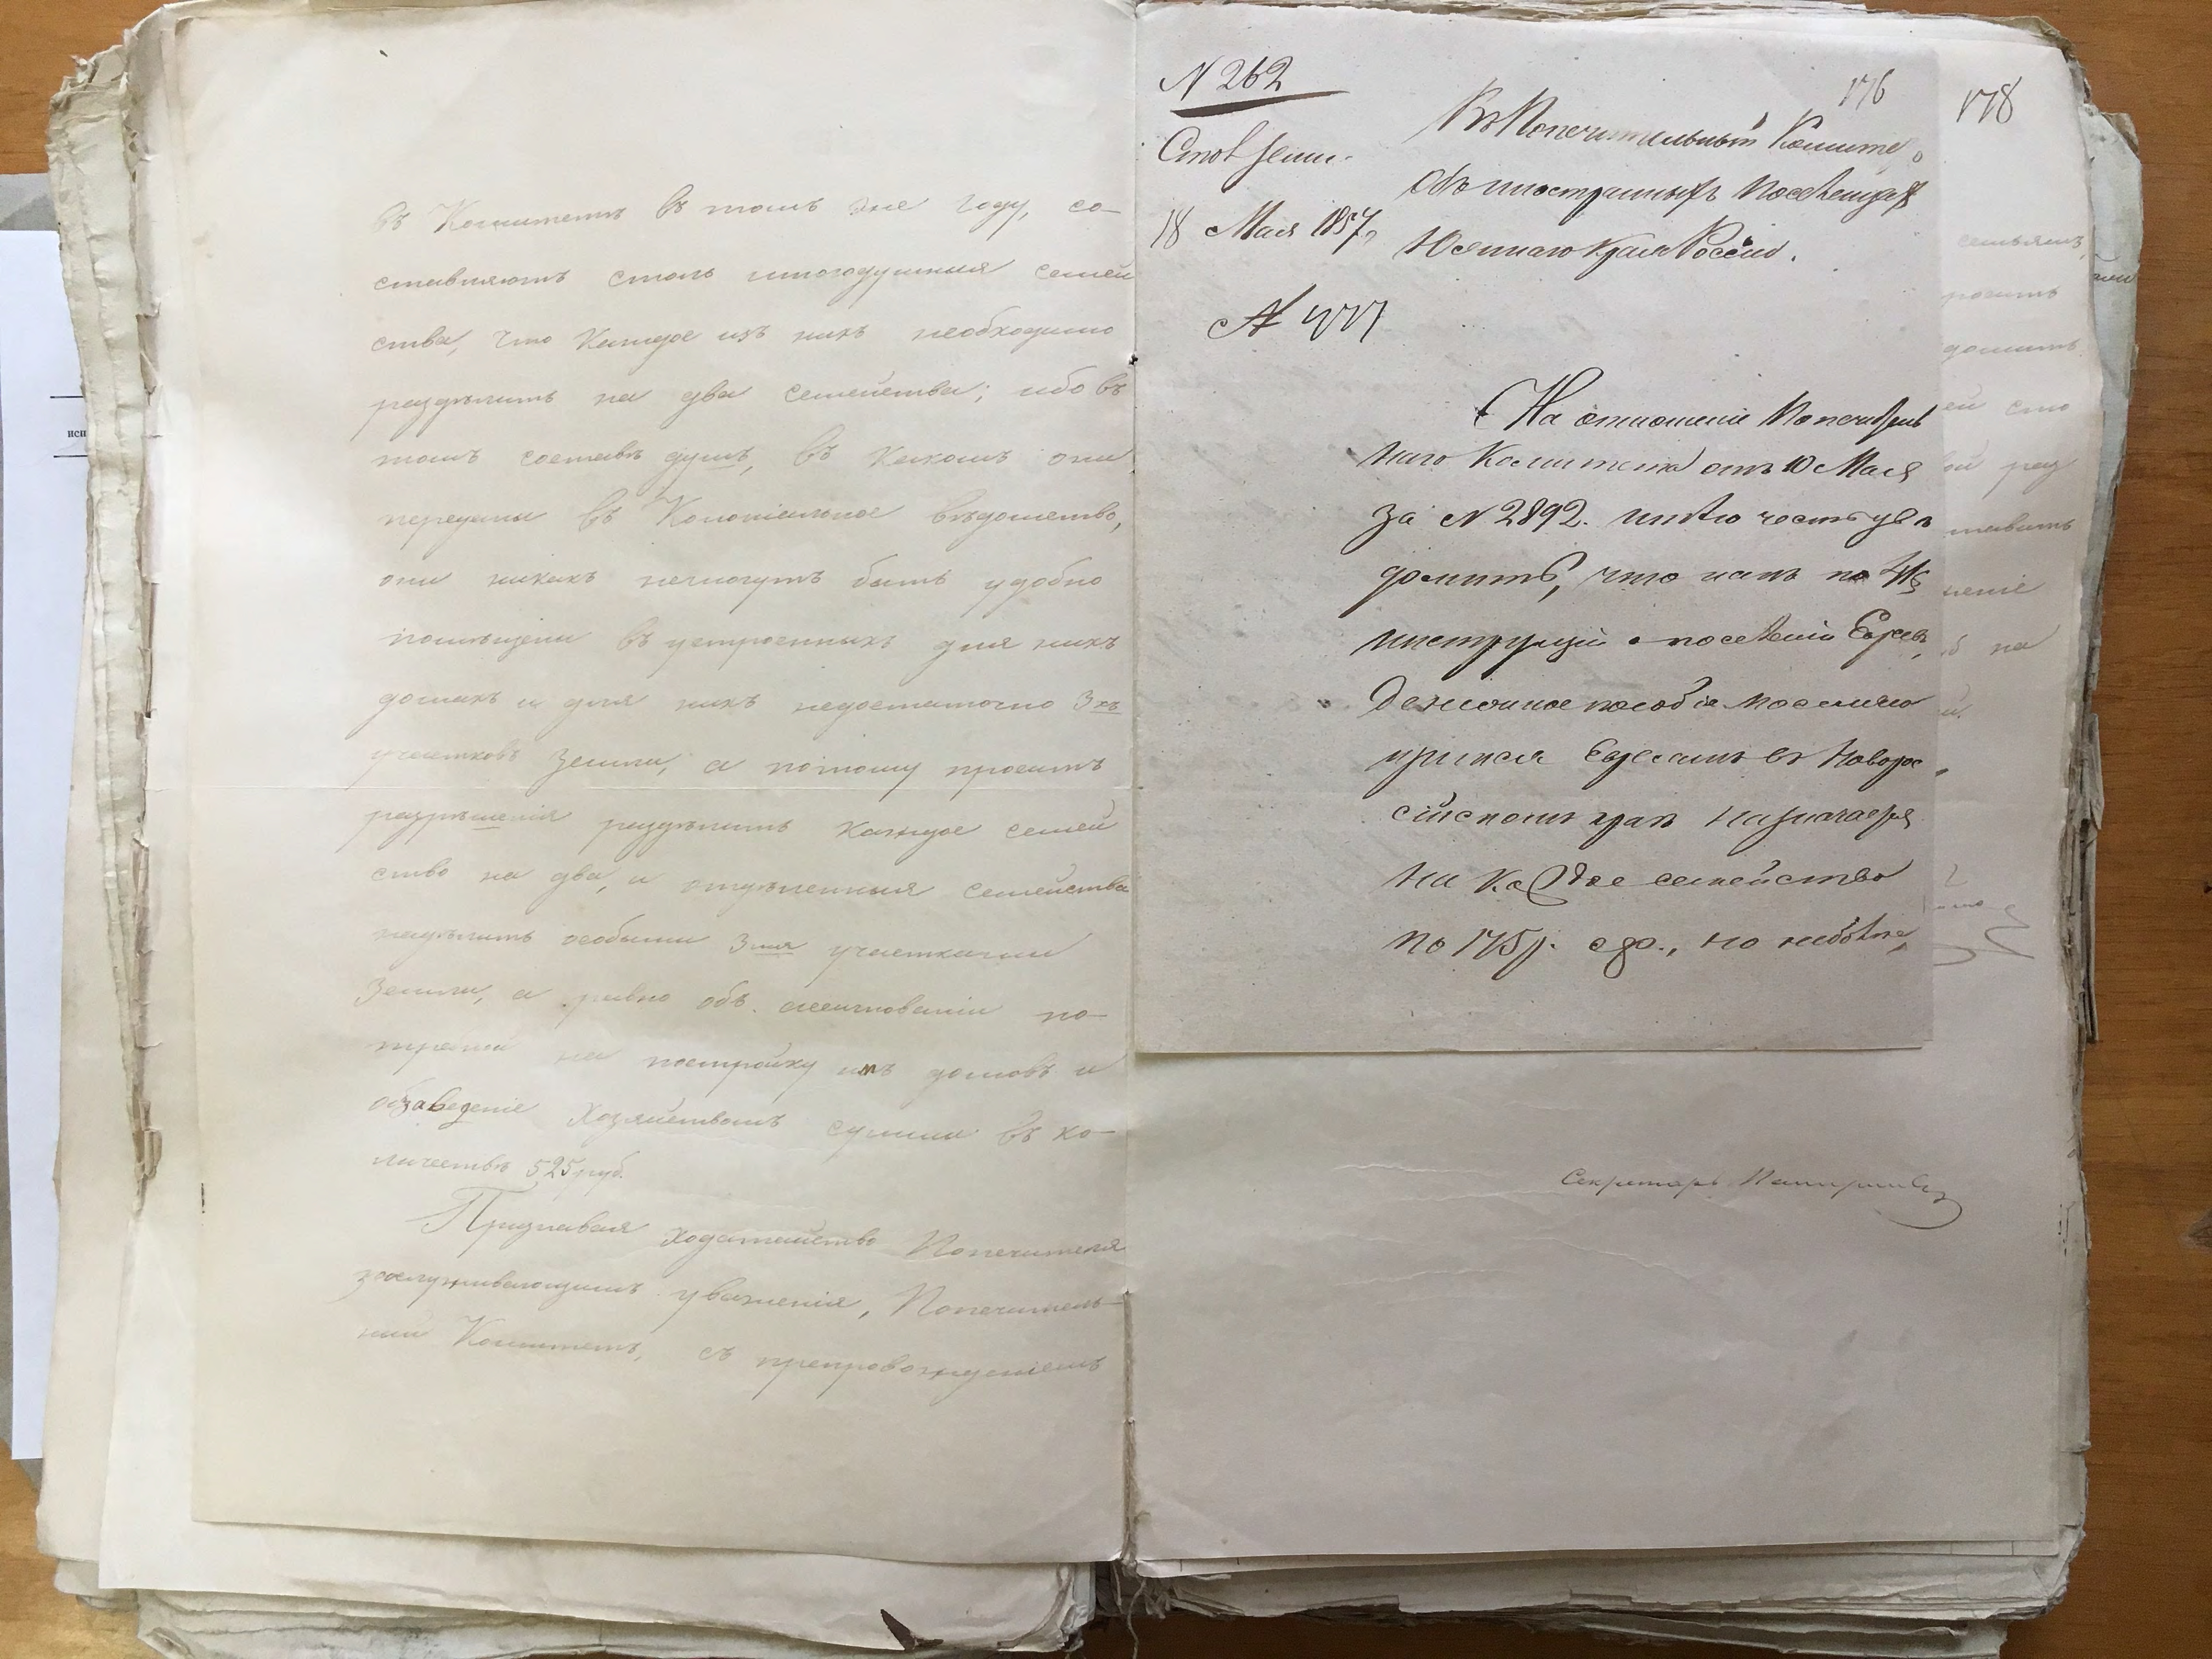 въ Комитетъ въ томъ же году, со-
ставляютъ столь многодушныя семей
ства, что Каждое изъ нихъ необходимо
раздѣлить на два семейства; ибо въ
томъ составѣ душъ, въ какомъ они
переданы въ Колоніальное вѣдомство,
они никакъ немогутъ быть удобно
помѣщены въ устроенныхъ для нихъ
домахъ и для нихъ недостаточно 3хъ
участковъ земли; а потому проситъ
разрѣшенія раздѣлить каждое семей
ство на два, и отдѣленныя семейства
надѣлить особыми 3мя участками
Земли, а равно объ ассигнованіи по-
требной на постройку имъ домовъ и
обзаведеніе хозяйствомъ суммы въ ко-
личествѣ 525 руб.
Признавая ходатайство Попечителя
заслуживающимъ уваженія, Попечитель-
ный Комитетъ, съ препровожденіемъ
N 262
18 Мая 1857,
N 477
176
Въ Попечительный Комите
объ иностранныхъ поселенцахъ
Южнаго края Россіи.
На отношеніе Попечитель
наго Комитета отъ 10 Мая
за N 2892. имѣю честь увѣ
домить, что какъ по
инструкціи о поселеніи Евреевъ,
Денежное пособіе поселяю
щимся Евреямъ въ Новорос
сійскомъ краѣ назначается
на каждое семейство
по 175 р. сер., но неболѣе,
178
семьямъ,
просить
домить
ей сто
ставить
неніе
на
Секретарь
исп